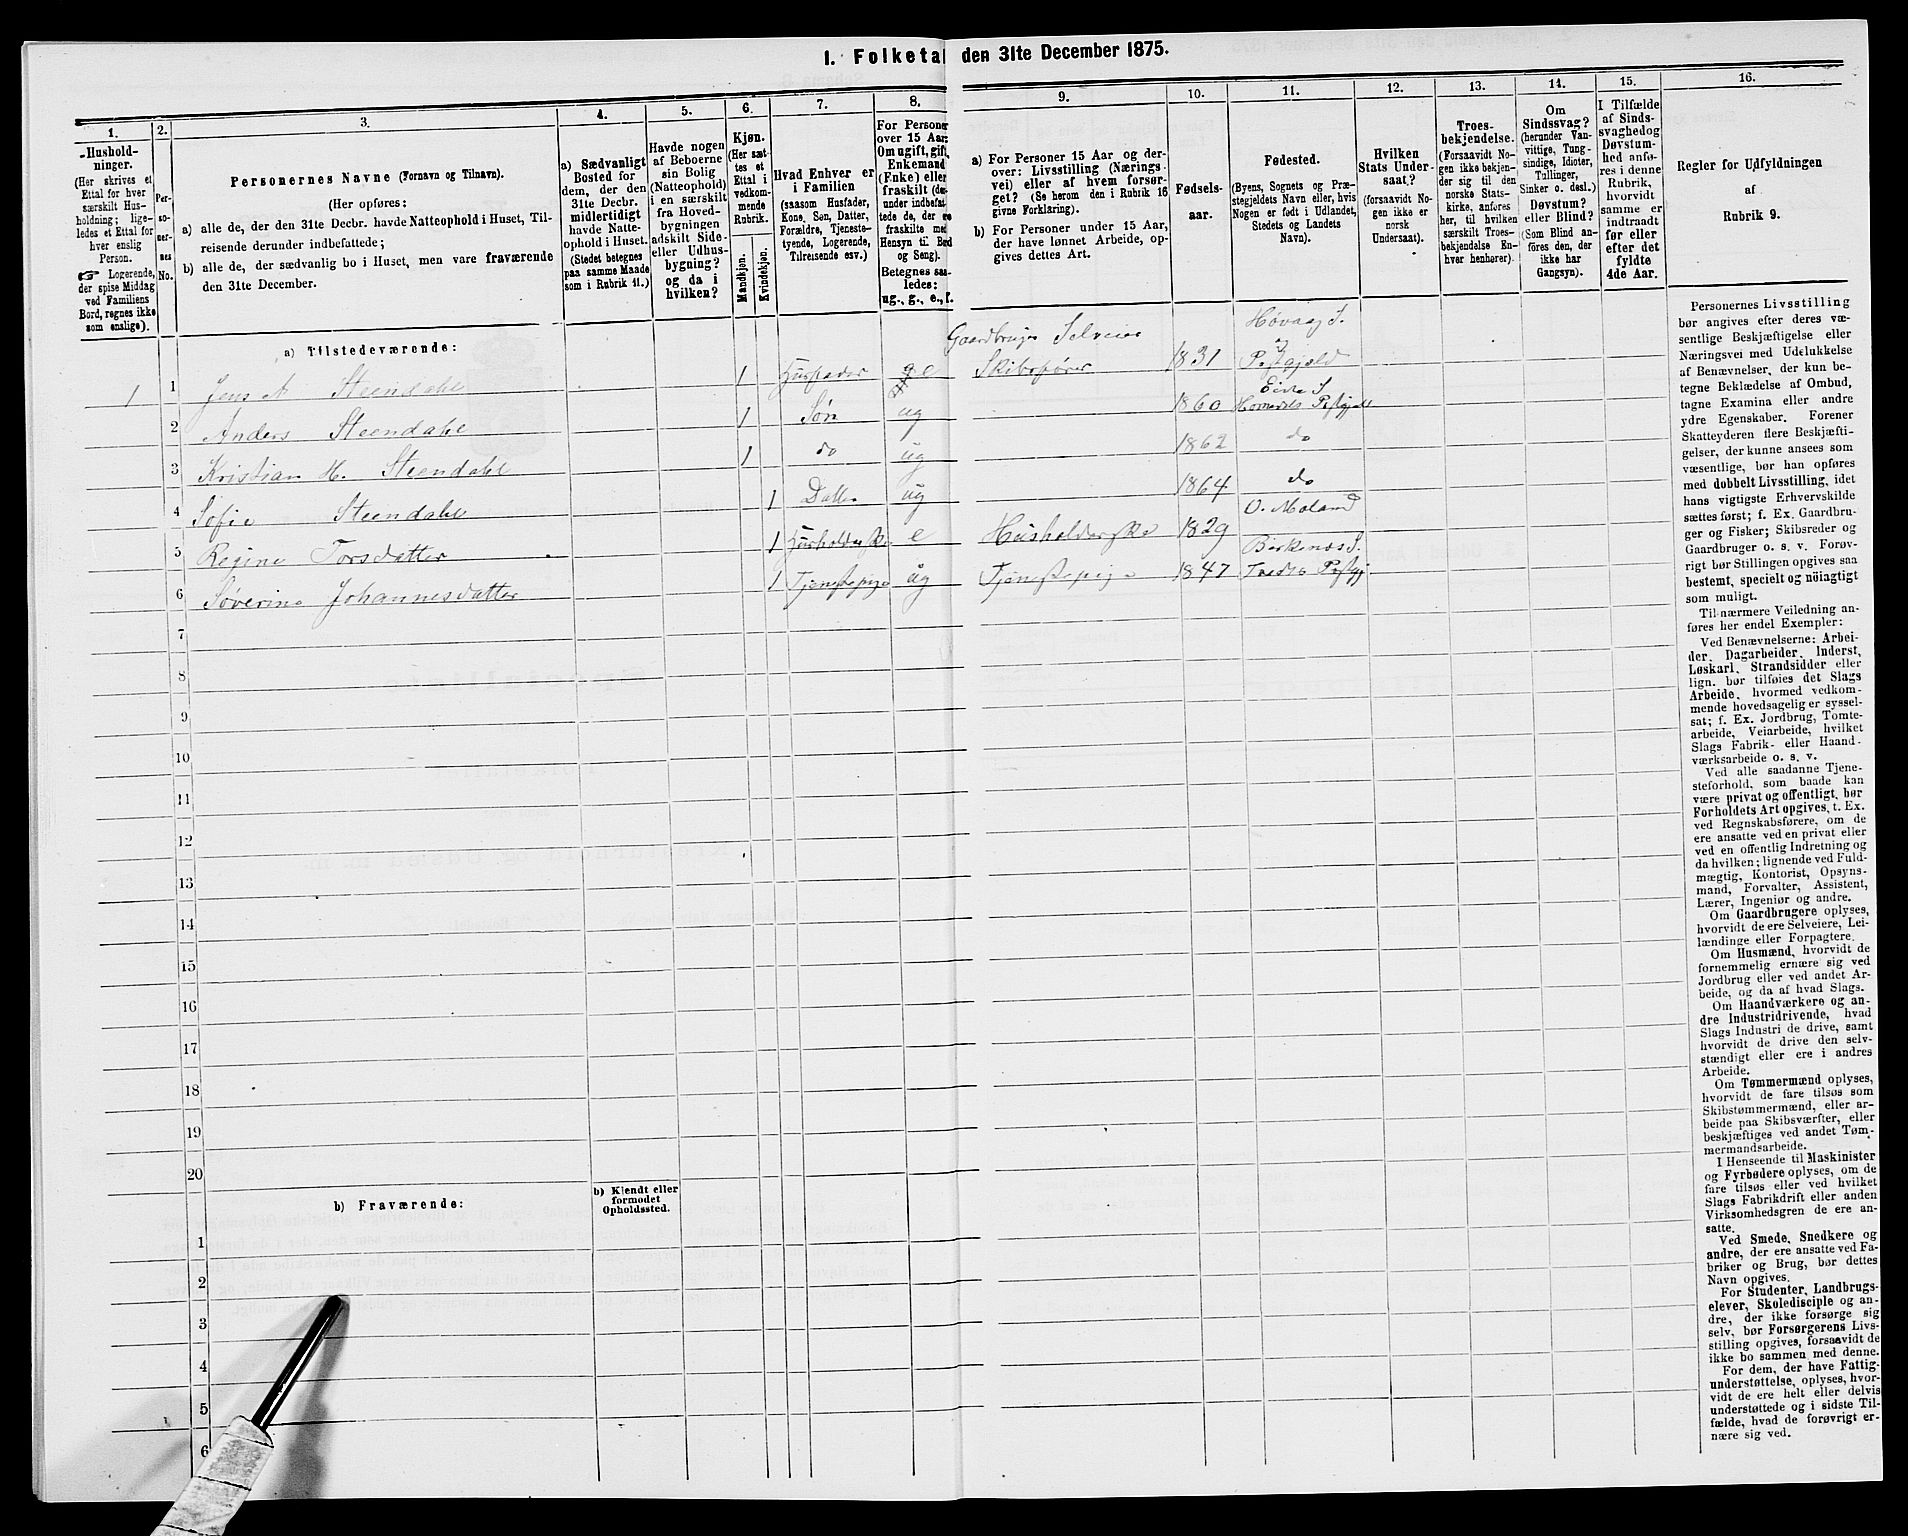 1. Folketal den 31te December 1875.
1.
Hushold-
ninger.
(Her skrives et
Ettal for hver
særskilt Hus-
holdning; lige-
ledes et Ettal for
hver enslig
Person.
☞ Logerende,
der spise Middag
ved Familiens
Bord, regnes ikke
som enslige).
2.
Per-
so-
ner-
nes
No.
3.
Personernes Navne (Fornavn og Tilnavn).
(Her opføres:
a) alle de, der den 31te Decbr. havde Natteophold i Huset, Til-
reisende derunder indbefattede;
b) alle de, der sædvanlig bo i Huset, men vare fraværende
den 31te December.
4.
a) Sædvanligt
Bosted for
dem, der den
31te Decbr.
midlertidigt
havde Natte-
ophold i Huset.
(Stedet betegnes
paa samme Maade
som i Rubrik 11.)
5.
Havde nogen
af Beboerne
sin Bolig
(Natteophold)
i en særskilt
fra Hoved-
bygningen
adskilt Side-
eller Udhus-
bygning?
og da i
hvilken?
6.
Kjøn.
(Her sæt-
tes et
Ettal i
vedkom-
mende
Rubrik.
Mandkjøn.
Kvindekjøn.
7.
Hvad Enhver er
i Familien
(saasom Husfader,
Kone, Søn, Datter,
Forældre, Tjeneste-
tyende, Logerende,
Tilreisende osv.)
8.
For Persone
over 15 Aar
Om ugift, gift,
Enkemand
(Enke) eller
fraskilt (der-
under indbefat-
tede de, der ere
fraskilte med
Hensyn til Bord
og Seng).
Betegnes saa-
ledes:
ug., g., e., f.
9.
a) For Personer 15 Aar og der-
over: Livsstilling (Nærings-
vei) eller af hvem forsør-
get? (Se herom den i Rubrik 16
givne Forklaring).
b) For Personer under 15 Aar,
der have lønnet Arbeide, op-
gives dettes Art.
10.
Fødsels-
aar.
11.
Fødested.
(Byens, Sognets og Præ-
stegjeldets Navn eller, hvis
Nogen er født i Udlandet,
Stedets og Landets
Navn).
12.
Hvilken
Stats Under-
saat?
(forsaavidt No-
gen ikke er
norsk
Undersaat).
13.
Troes-
bekjendelse.
(Forsaavidt No-
gen ikke bekjen-
der sig til den
norske Stats-
kirke, anføres
her, til hvilken
særskilt Troes-
bekjendelse En-
hver henhører).
14.
Om
Sindssvag?
(herunder Van-
vittige, Tung-
sindige, Idioter,
Tullinger,
Sinker o. desl.)
Døvstum?
eller Blind?
(Som Blind an-
føres den, der
ikke har
Gangsyn).
15.
I Tilfælde
af Sinds-
svaghedog
Døvstum-
hed anfø-
res i denne
Rubrik,
hvorvidt
samme er
indtraadt
før eller
efter det
fyldte
4de Aar.
16.
Regler for Udfyldningen
af
Rubrik 9.
a) Tilstedeværende:
Gaardbruger Selveier Høvaag S.
1 1 Jens A Steendahl 1 Husfader e Skibsfører 1831 Pstgjeld
Eide S
2 Anders Steendahl 1 Søn ug 1860 Homedals Pstgjeld
3 Kristian H. Steendahl 1 do ug 1862 do
4 Sofie Steendahl 1 Datter ug 1864 do
5 Regine Torsdatter 1 Husholderske e Husholderske 1829 O. Moland
Birkenæs S.
6 Søverine Johannesdatter 1 Tjenstepige ug Tjenstepige 1847 Pstgj
7
8
9
10
11
12
13
14
15
16
17
18
19
20
b) Fraværende:
b) Kjendt eller
formodet
Opholdssted.
1
2
3
4
5
6
Personernes Livsstilling
bør angives efter deres væ-
sentlige Beskjæftigelse eller
Næringsvei med Udelukkelse
af Benævnelser, der kun be-
tegne Beklædelse af Ombud,
tagne Examina eller andre
ydre Egenskaber. Forener
Skatteyderen flere Beskjæfti-
gelser, der kunne ansees som
væsentlige, bør han opføres
med dobbelt Livsstilling, idet
hans vigtigste Erhvervskilde
sættes først; f. Ex. Gaardbru-
ger og Fisker; Skibsreder og
Gaardbruger o. s. v. Forøv-
rigt bør Stillingen opgives saa
bestemt, specielt og nöiagtigt
som muligt.
Til nærmere Veiledning an-
føres her endel Exempler:
Ved Benævnelserne: Arbei-
der, Dagarbeider, Inderst,
Løskarl, Strandsidder eller
lign. bør tilføies det Slags
Arbeide, hvormed vedkom-
mende hovedsagelig er syssel-
sat; f. Ex. Jordbrug, Tomte-
arbeide, Veiarbeide, hvilket
Slags Fabrik- eller Haand-
værksarbeide o. s. v.
Ved alle saadanne Tjene-
steforhold, som baade kan
være privat og offentligt, bør
Forholdets Art opgives, t. Ex.
ved Regnskabsførere, om de
ere ansatte ved en privat eller
ved en offentlig Indretning og
da hvilken; lignende ved Fuld-
mægtig, Kontorist, Opsyns-
mand, Forvalter, Assistent,
Lærer, Ingeniør og andre.
Om Gaardbrugere oplyses,
hvorvidt de ere Selveiere, Lei-
lændinge eller Forpagtere.
Om Husmænd, hvorvidt de
fornemmelig ernære sig ved
Jordbrug eller ved andet Ar-
beide, og da af hvad Slags.
Om Haandværkere og an-
dre Industridrivende, hvad
Slags Industri de drive, samt
hvorvidt de drive den selv-
stændigt eller ere i andres
Arbeide.
Om Tømmermænd oplyses,
hvorvidt de fare tilsøs som
Skibstømmermænd, eller ar-
beide paa Skibsværfter, eller
beskjæftiges ved andet Tøm-
mermandsarbeide.
I Henseende til Maskinister
og Fyrbødere oplyses, om de
fare tilsøs eller ved hvilket
Slags Fabrikdrift eller anden
Virksomhedsgren de ere an-
satte.
Ved Smede, Snedkere og
andre, der ere ansatte ved Fa-
briker og Brug, bør dettes
Navn opgives.
For Studenter, Landbrugs-
elever, Skoledisciple og an-
dre, der ikke forsørge sig
selv, bør Forsørgerens Livs-
stilling opgives, forsaavidt de
ikke bo sammen med denne.
For dem, der have Fattig-
understøttelse, oplyses, hvor-
vidt de ere helt eller delvis
understøttede og i sidste Til-
fælde, hvad de forøvrigt er-
nære sig ved.